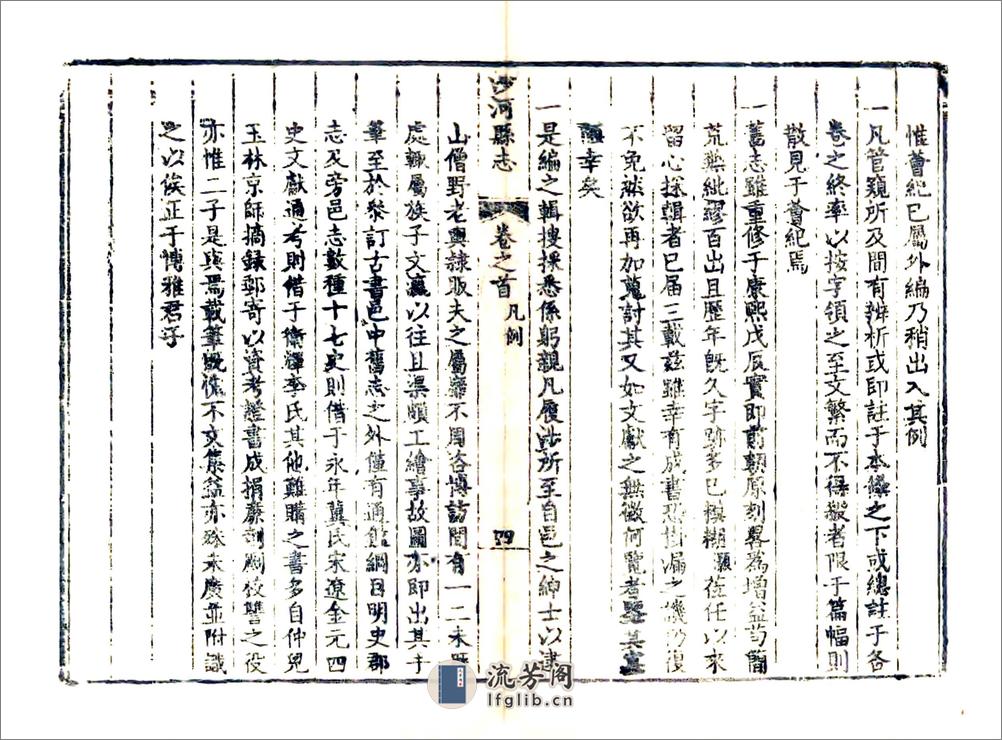 惟薈紀已屬外編乃稍出入其例
一凡管窺所及間有辨析或即註于本條之下或總註于各
卷之終率以按字領之至文繁而不得殺者限于篇幅則
散見于薈紀焉
一舊志雖重修于康熙戊辰實即前朝原刻畧為增益苟簡
荒蕪紕繆百出且歷年旣久字跡多已模糊顥蒞任以來
留心採輯者已屆三載茲雖幸有成書恐 漏之譏仍復
不免然欲再加蒐討其又如文獻之無徵何覽者鑒其
幸矣
一是編之輯搜採悉係躬親凡履 所至自邑之紳士以逮
山僧野老輿隸販夫之屬靡不周咨博訪間有一二未歷
處輒屬族子文瀛以往且渠頗工繪事故圖亦即出其手
筆至於參訂古書邑中舊志之外僅有通鑑綱目明史郡
志及旁邑志數種十七史則借于永年冀氏宋遼金元四
史文獻通考則借于衛輝李氏其他難購之書多自仲兄
玉林京師摘録郵寄以資考證書成捐廉剞劂校讐之役
亦惟二子是與焉載筆旣慌不文集益亦殊未廣並附識
之以俟正于博雅君子
沙河縣志
卷之首
凡例
四
流芳阁
lfglib.cn